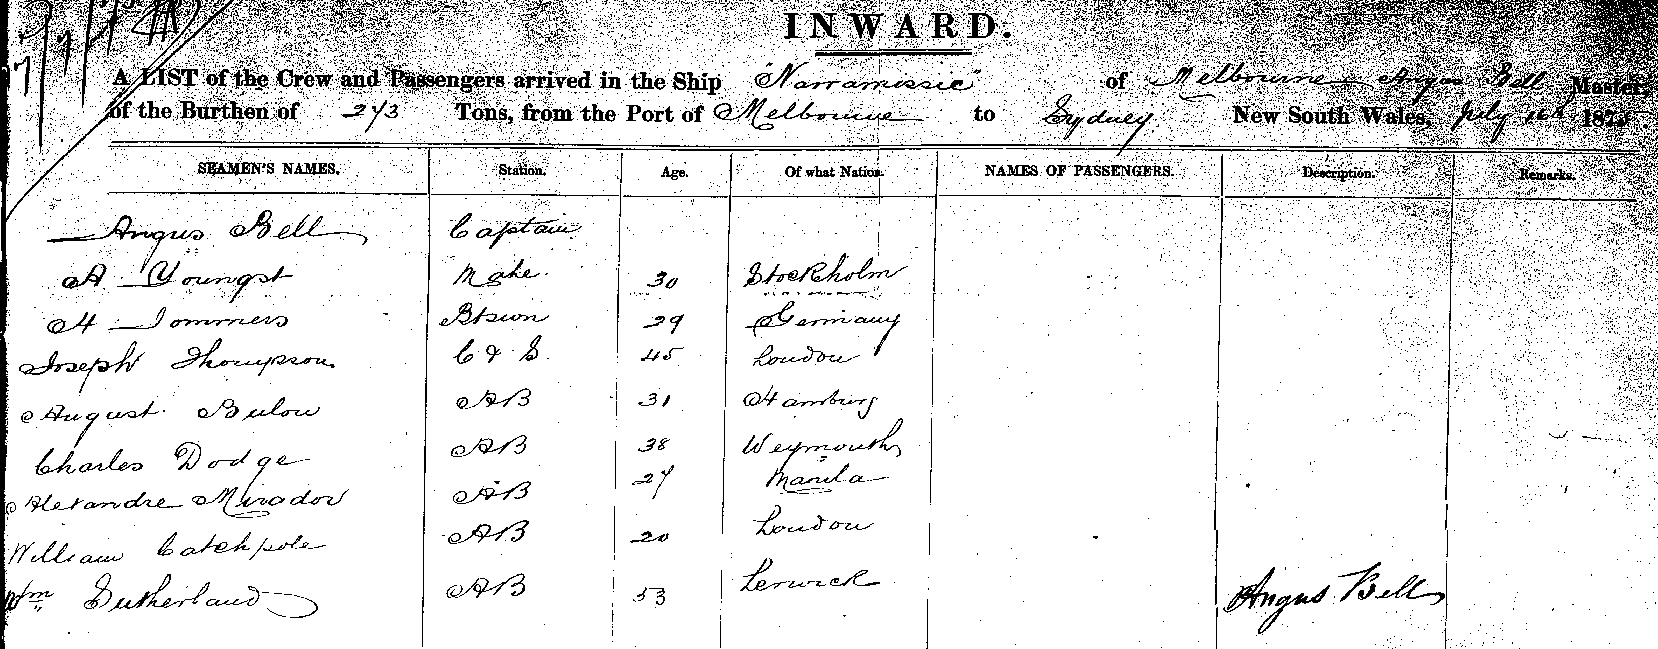 INWARD.
A LIST of the Crew and Passengers arrived in the Ship "Narramissic" of Melbourne Angus Bell Master,
of the Burthen of 243 Tons, from the Port of Melbourne to Sydney New South Wales, July 187
SEAMEN'S NAMES. Station. Age. Of what Nation. NAMES OF PASSENGERS. Description. Remarks.
Angus Bell Captain
A Youngst Mate 30 Stockholm
H Sommers Btswn 29 Germany
Joseph Thompson C & S. 45 London
August Bulow AB 31 Hamburg
Charles Dodge AB 38 Weymouth
Alexandre Mirador AB 27 Manila
William Catchpole AB 20 London
Wm Sutherland AB 53 Lerwick
Angus Bell